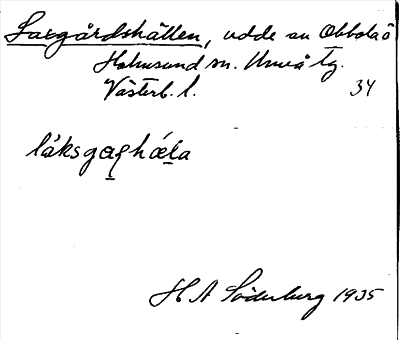 Laxgårdshällen, udde su Obbolaö
Holmsund sn. Umeå tg.
Västerb. l. 34
H A Söderberg 1935